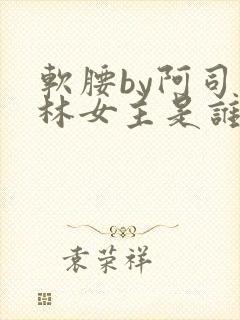 軟腰by阿司
林女主是誰
袁荣祥